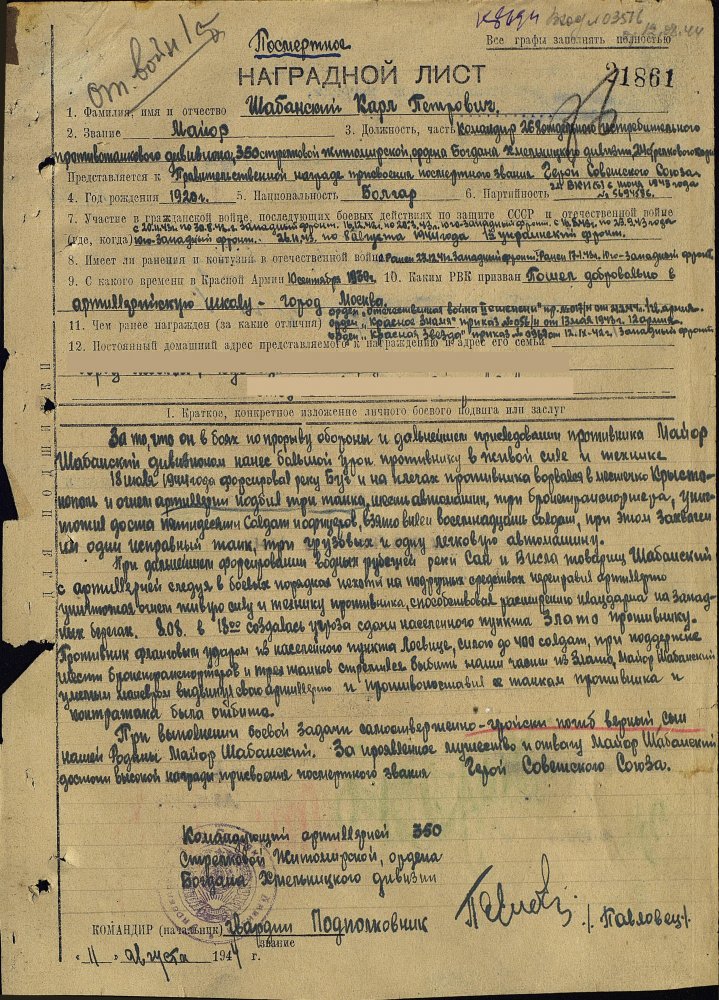 Посмертное
Все графы заполнять полностью
НАГРАДНОЙ ЛИСТ
21861
1. Фамилия, имя и отчество Шабанский Карл Петрович.
2. Звание Майор 3. Должность, часть Командир 26 истребительного
противотанкового дивизиона, 350 стрелковой житомирской, ордена Богдана Хмельницкого дивизии,
Представляется к Правительственной награде присвоения посмертного звания Герой Советского Союза.
4. Год рождения 1920 г. 5. Национальность Болгар 6. Партийность ВКП(б) с июня 1943 года
№ 5694586.
7. Участие в гражданской войне, последующих боевых действиях по защите СССР и отечественной войне
(где, когда) Юго-Западный фронт. по 8 августа 1944 года 1й украинский фронт.
8. Имеет ли ранения и контузии в отечественной войне Ранен Западный фронт. Ранен 17.1.43г. Юго-Западный фронт.
9. С какого времени в Красной Армии сентября 1939г. 10. Каким РВК призван Пошел добровольно в
артиллерийскую школу - город Москва.
орден „Отечественная война II степени" пр. армия.
11. Чем ранее награжден (за какие отличия) орден „Красное знамя" приказ № 056/н от 13 мая 1943г. 12 армия.
орден „Красная Звезда" приказ № от 12.IX-42г. Западный фронт
12. Постоянный домашний адрес представляемого к награждению и адрес его семьи
I. Краткое, конкретное изложение личного боевого подвига или заслуг
ДЛЯ ПОДШИВКИ
За то, что он в боях по прорыву обороны и дальнейшем приследовании противника Майор
Шабанский дивизионом нанес большой урон противнику в живой силе и технике
18 июля 1944 года форсировал реку Буг и на плечах противника ворвался в местечко Крыстонополь
и огнем артиллерии подбил три танка, шесть автомашин, три бронетранспортера, уничтожил
до ста пятидесяти солдат и офицеров, взято в плен восемнадцать солдат, при этом захвачен
один исправный танк, три грузовых и одну легковую автомашину.
При дальнейшем форсировании водных рубежей реки Сан и Висла товарищ Шабанский
с артиллерией следуя в боевых порядках пехоты на подручных средствах переправил артиллерию
уничтожая огнем живую силу и технику противника, способствовал расширению плацдарма на западных
берегах. 8.08. в 18 00 создалась угроза сдачи населенного пункта Злато противнику.
Противник фланговым ударом из населенного пункта Лоевице, силою до 400 солдат, при поддержке
шести бронетранспортеров и трех танков стремился выбить наши части из Злата, Майор Шабанский
умелым маневром выдвинул свою артиллерию и противопоставил ее танкам противника и
контратака была отбита.
При выполнении боевой задачи самоотверженно-геройски погиб верный сын
нашей Родины Майор Шабанский. За проявленное мужество и отвагу Майор Шабанский
достоин высокой награды присвоения посмертного звания Герой Советского Союза.
Командующий артиллерией 350
Стрелковой Житомирской, ордена
Богдана Хмельницкого дивизии
КОМАНДИР (начальник) Гвардии Подполковник /Павловец/.
звание
„11" августа 1944 г.